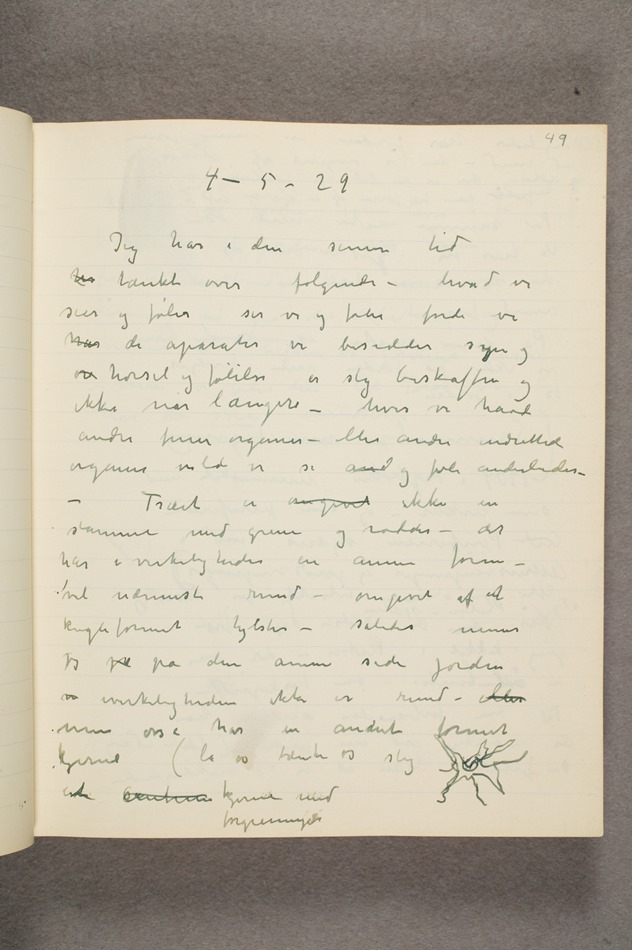 49
4 – 5 – 29
Jeg har i den senere tid
tænkt over følgende – hvad vi
seer og føler ser vi og føler fordi vi
har de aparater vi besidder syn og
hørsel og følelse er slig beskaffen og
ikke når længere – hvis vi havde
andre finere organer – eller andre indrettede
organer vilde vi se and og føle anderledes –
– Træet er omgivet ikke en
stamme med grene og rødder – det
har i virkeligheden en annen form –
vel nærmest rund – omgivet af et
kugleformet hylster – således mener
jeg på den annen side jorden
i virkeligheden ikke er rund – eller
men også har en andet formet
kjerne (la os tænke os slig
en kjerne med
forgreninger